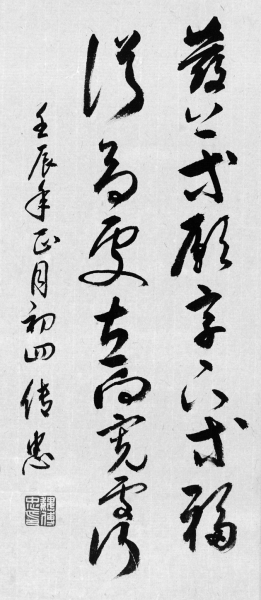 發上等願享下等福
高處立向寬處行
壬辰年正月初四傳忠